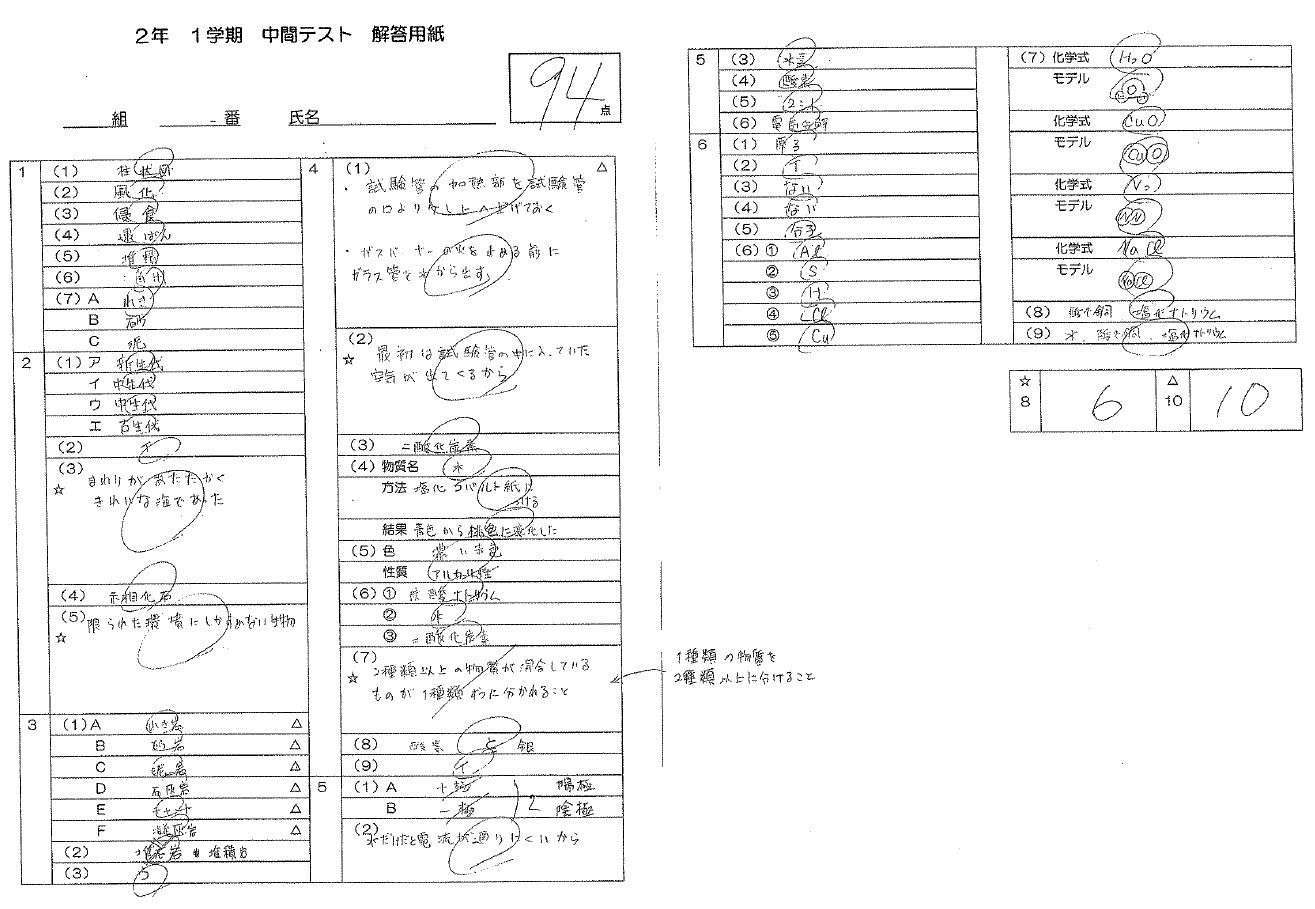 2年 1学期 中間テスト 解答用紙
94 点
組 番 氏名
1 (1) 柱状図
(2) 風化
(3) 侵食
(4) 運ぱん
(5) 堆積
(6)
(7) A れき
B 砂
C 泥
2 (1) ア 新生代
イ 中生代
ウ 中生代
エ 古生代
(2)
(3) まわりがあたたかく
☆ きれいな海であった
(4) 示相化石
(5) 限られた環境にしかすめない生物
☆
3 (1) A れき岩 △
B 砂岩 △
C 泥岩 △
D 石灰岩 △
E チャート △
F 凝灰岩 △
(2) 堆積岩
(3) う
4 (1) △
・試験管の加熱部を試験管
の口より少し上へ上げておく
・ガスバーナーの火を止める前に
ガラス管を水から出す
(2)
☆ 最初は試験管の中に入っていた
空気が出てくるから
(3) 二酸化炭素
(4) 物質名 水
方法 塩化コバルト紙に
つける
結果 青色から桃色に変化した
(5) 色 濃い赤色
性質 アルカリ性
(6) ① 炭酸ナトリウム
② 水
③ 二酸化炭素
(7)
☆ 2種類以上の物質が混合している
ものが1種類ずつに分かれること
(8) 酸素 と 銀
(9) イ
5 (1) A +極 陽極
B −極 2 陰極
(2) 水だけだと電流が通りにくいから
1種類の物質を
2種類以上に分けること
5 (3) 水素
(4) 酸素
(5) 2:1
(6) 電気分解
6 (1) 原子
(2) イ
(3) ない
(4) ない
(5) 分子
(6) ① Al
② S
③ H
④ Cl
⑤ Cu
(7) 化学式 H₂O
モデル
O
H H
化学式 CuO
モデル
Cu O
化学式 N₂
モデル
N N
化学式 NaCl
モデル
Na Cl
(8) 酸化銅 塩化ナトリウム
(9) 水、酸化銅、塩化ナトリウム
☆ 8 6 △ 10 10